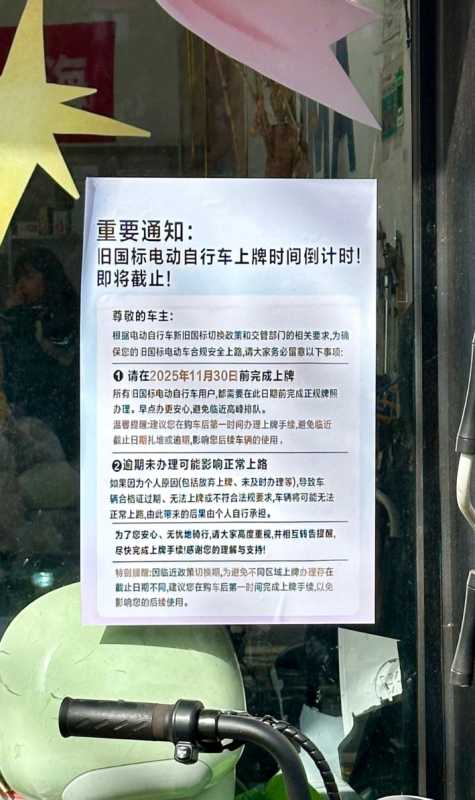 重要通知：
旧国标电动自行车上牌时间倒计时！
即将截止！
尊敬的车主：
根据电动自行车新旧国标切换政策和交管部门的相关要求,为确
保您的旧国标电动车合规安全上路,请大家务必留意以下事项:
❶ 请在2025年11月30日前完成上牌
所有旧国标电动自行车用户,都需要在此日期前完成正规牌照
办理。早点办更安心,避免临近高峰排队。
温馨提醒:建议您在购车后第一时间办理上牌手续,避免临近
截止日期扎堆或逾期,影响您后续车辆的使用。
❷逾期未办理可能影响正常上路
如果因为个人原因(包括放弃上牌、未及时办理等),导致车
辆合格证过期、无法上牌或不符合法规要求,车辆将可能无法
正常上路,由此带来的后果由个人自行承担。
为了您安心、无忧地骑行,请大家高度重视,并相互转告提醒,
尽快完成上牌手续!感谢您的理解与支持!
特别提醒:因临近政策切换期,为避免不同区域上牌办理存在
截止日期不同,建议您在购车后第一时间完成上牌手续,以免
影响您的后续使用。